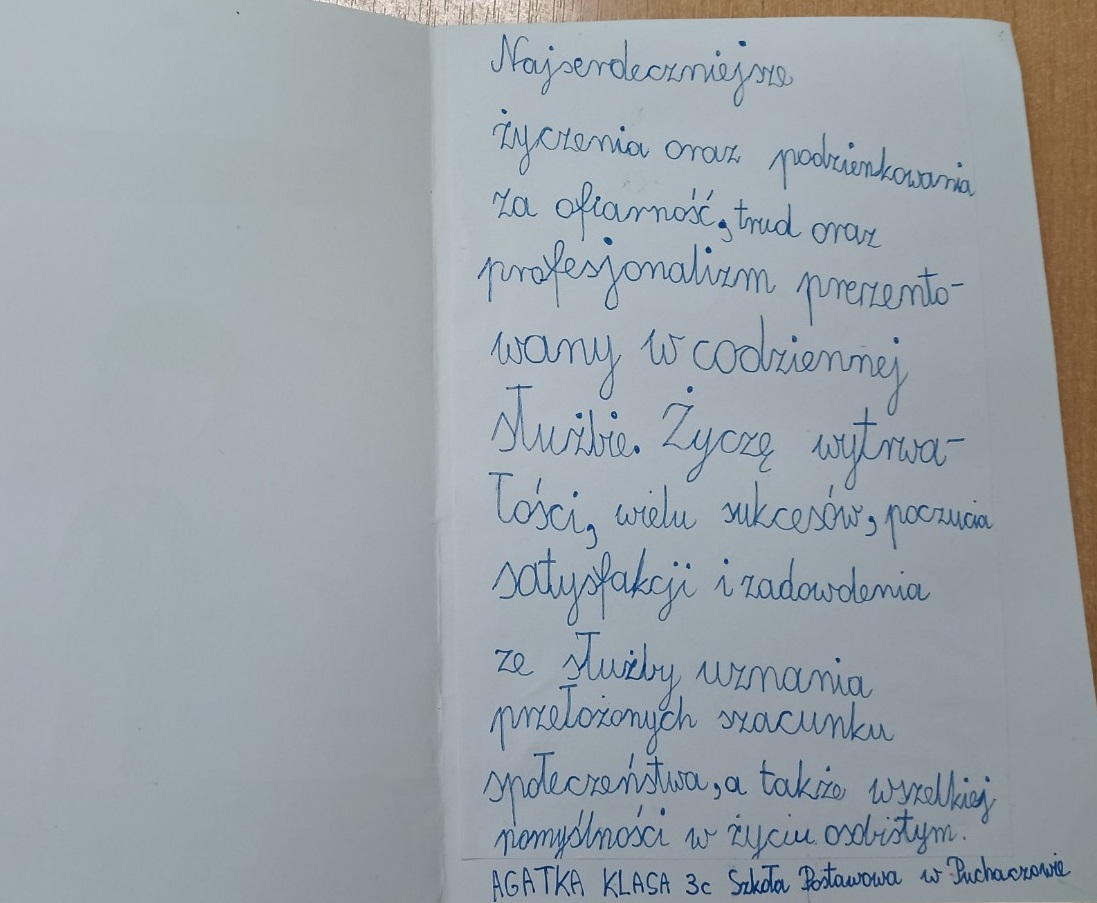 Najserdeczniejsze
życzenia oraz podzienkowania
za ofiarność, trud oraz
profesjonalizm prezento-
wany w codziennej
służbie. Życzę wytrwa-
łości, wielu sukcesów, poczucia
satysfakcji i zadowolenia
ze służby uznania
przełożonych szacunku
społeczeństwa, a także wszelkiej
pomyślności w życiu osobistym.
AGATKA KLASA 3c Szkoła Postawowa w Puchaczowie